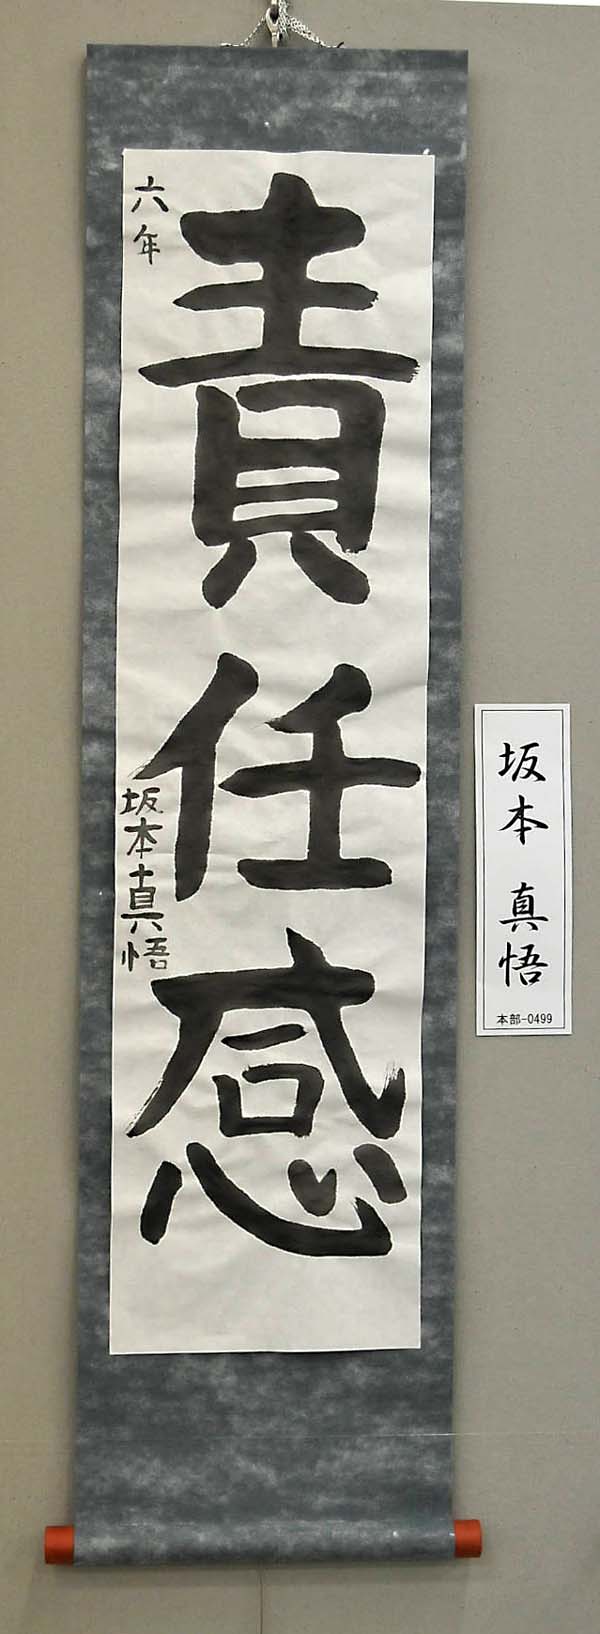 責任感
六年
坂本真悟
坂本 真悟
本部-0499